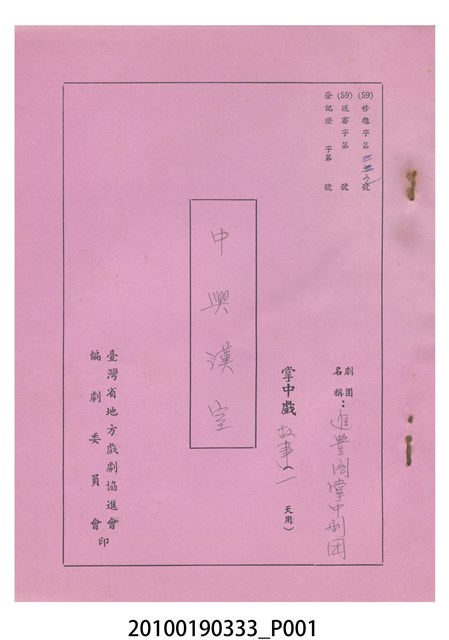 (59)修應字第三三〇號
(59)送審字第 號
登記證 字第 號
劇團名稱：進豐閣掌中劇團
掌中戲故事(一天用)
中興漢室
臺灣省地方戲劇協進會
編劇委員會印
20100190333_P001